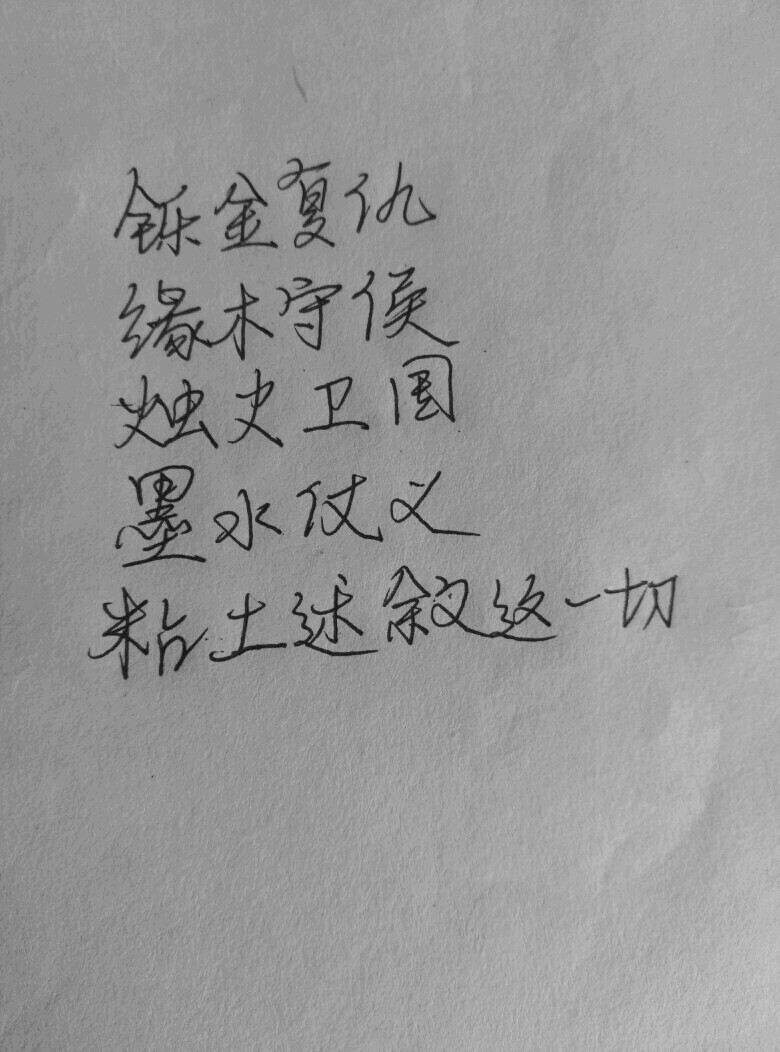 铄金复仇
缘木守侯
烛史卫国
墨水仗义
粘土述叙这一切